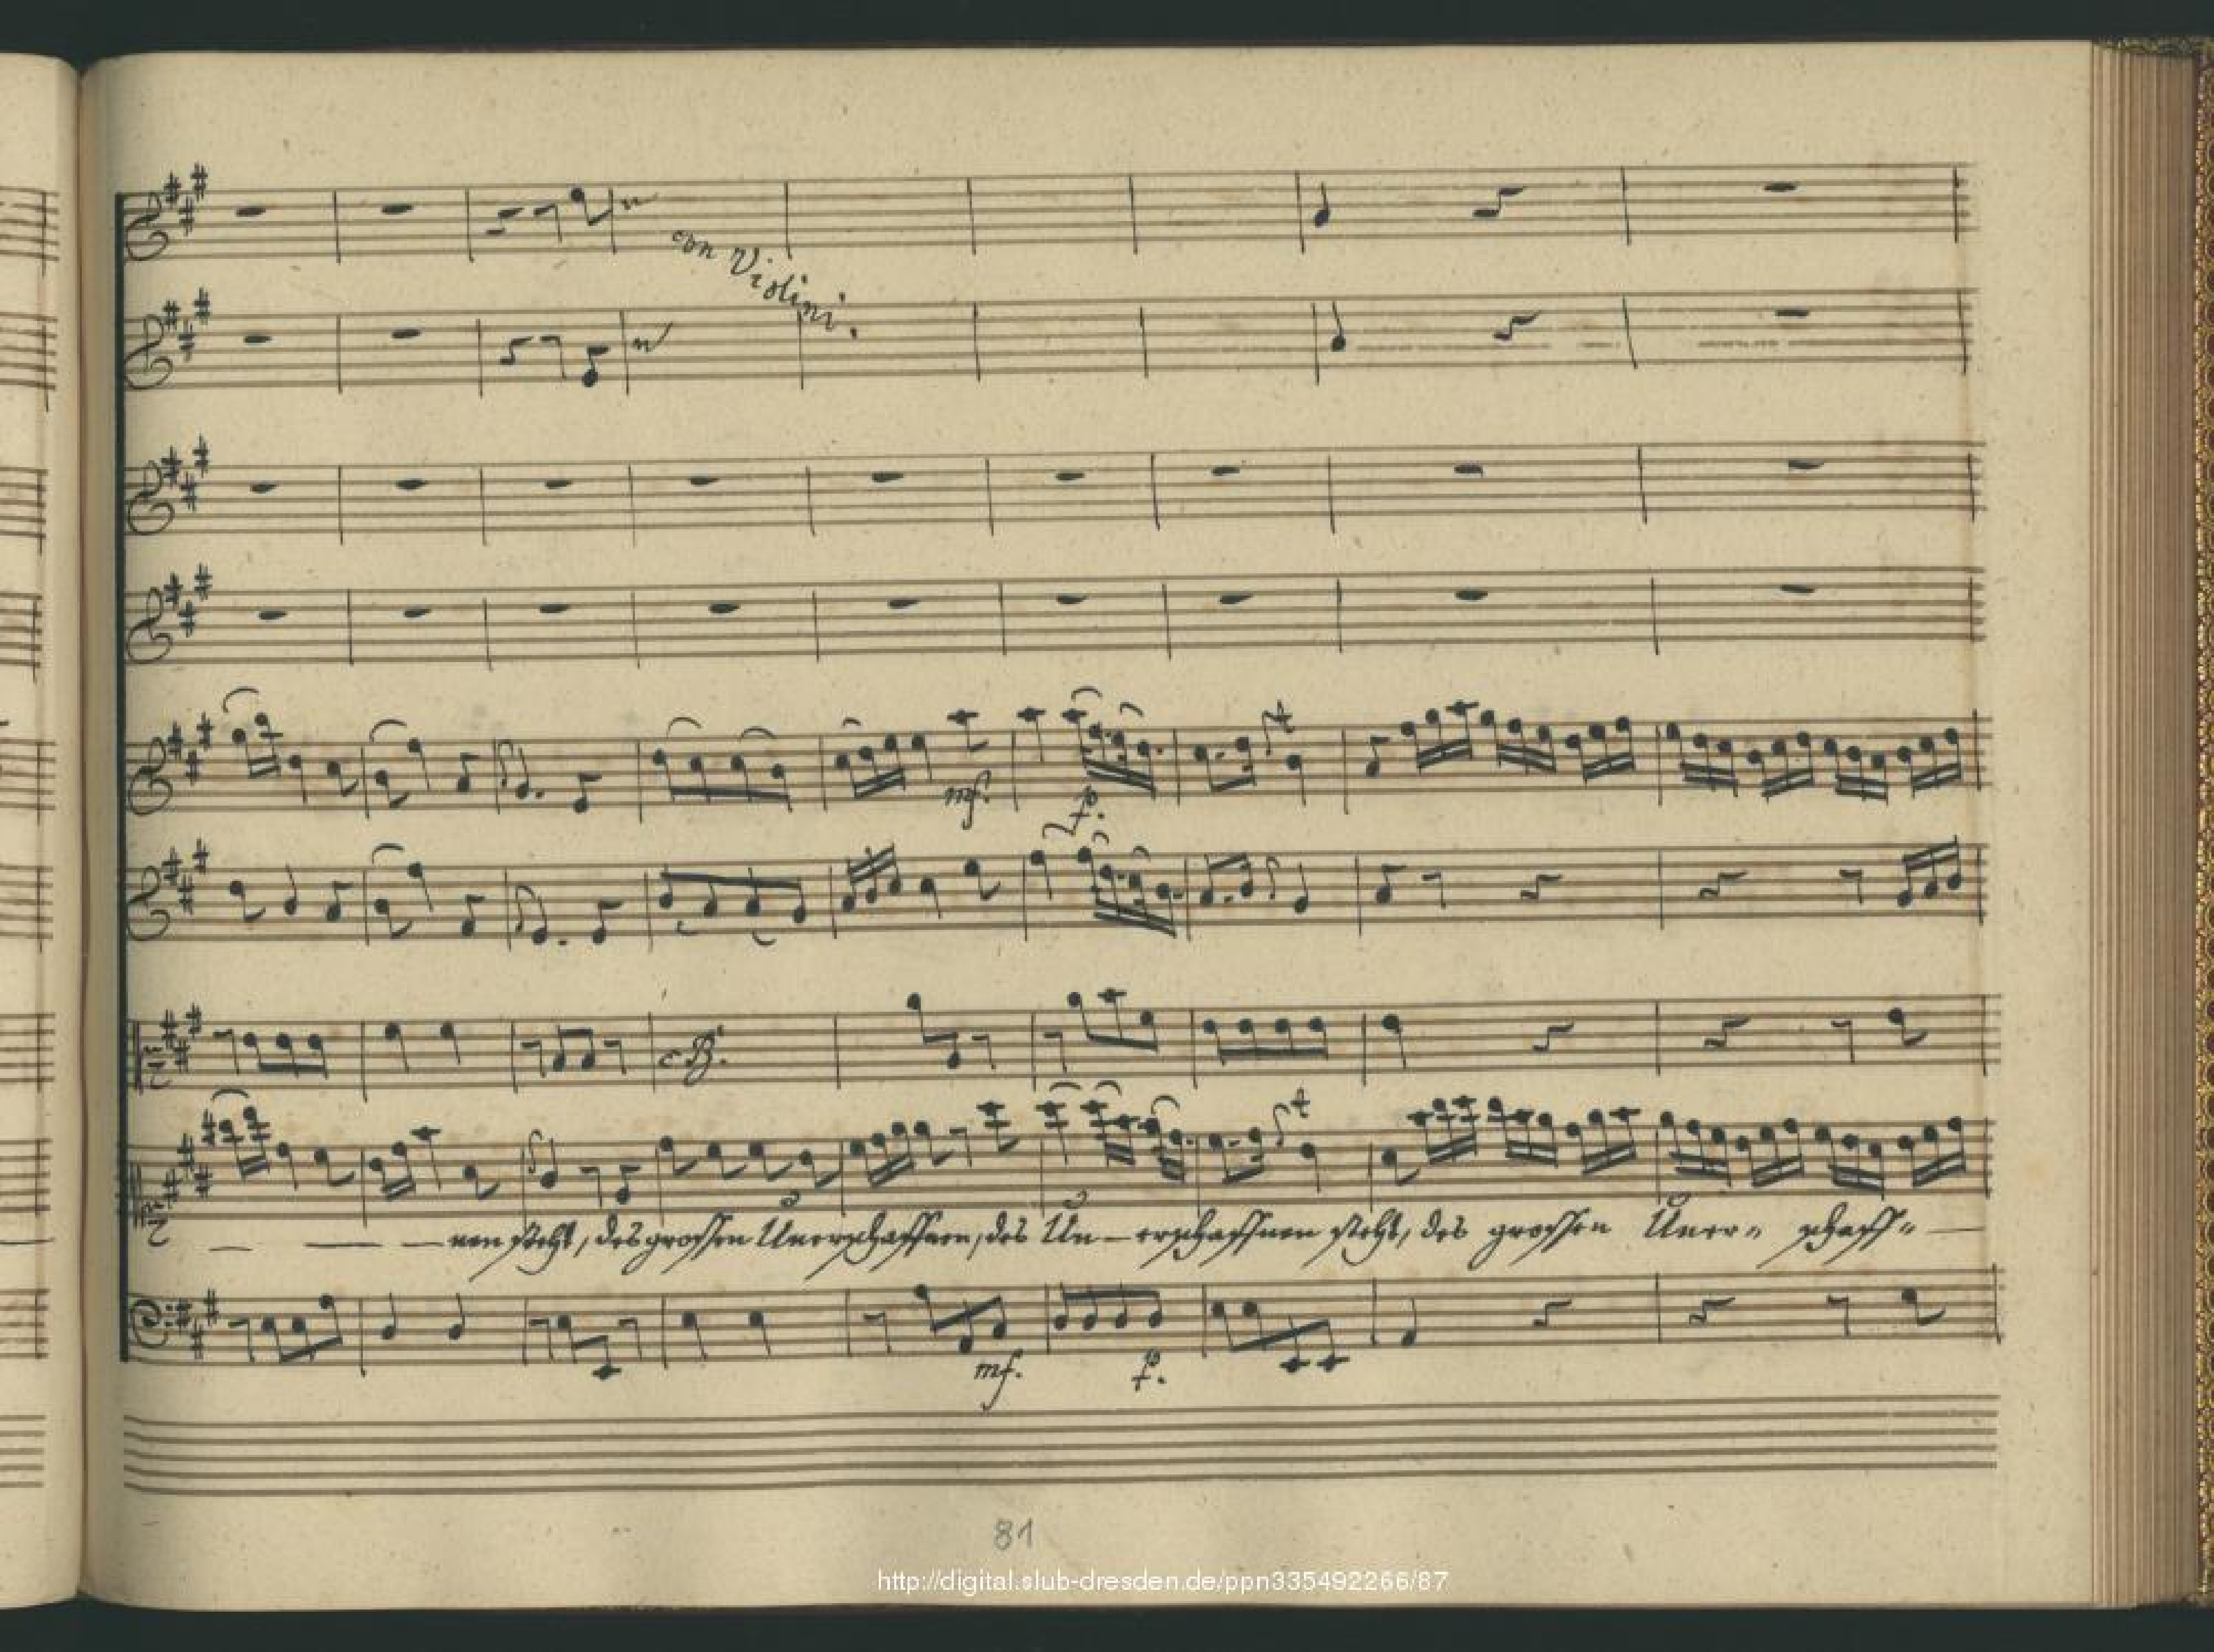 con Violini.
mf.
p.
c B.
nen steht, des grossen Unerschaffnen, des Un- erschaffnen steht, des grossen Uner- schaff-
mf.
p.
81
http://digital.slub-dresden.de/ppn335492266/87